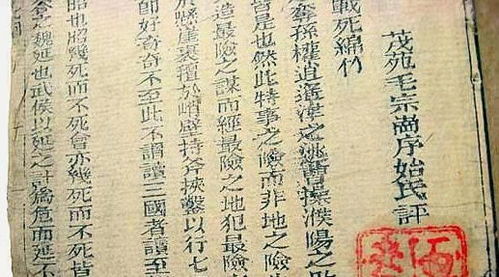 茂苑毛宗崗序始氏評
戰死綿竹
孫權逍遙津之跳曹操濮陽之
皆是也然此特事之險而非地之險
造最險之謀而經最險之地犯最險
於懸崖裹氊於峭壁持斧挾鑿以行七
師好奇奇不至此不謂讀三國者讀至
昭也將幾死而不死會亦幾死而不死皆
會之魏延也武侯以延之計為危而延不